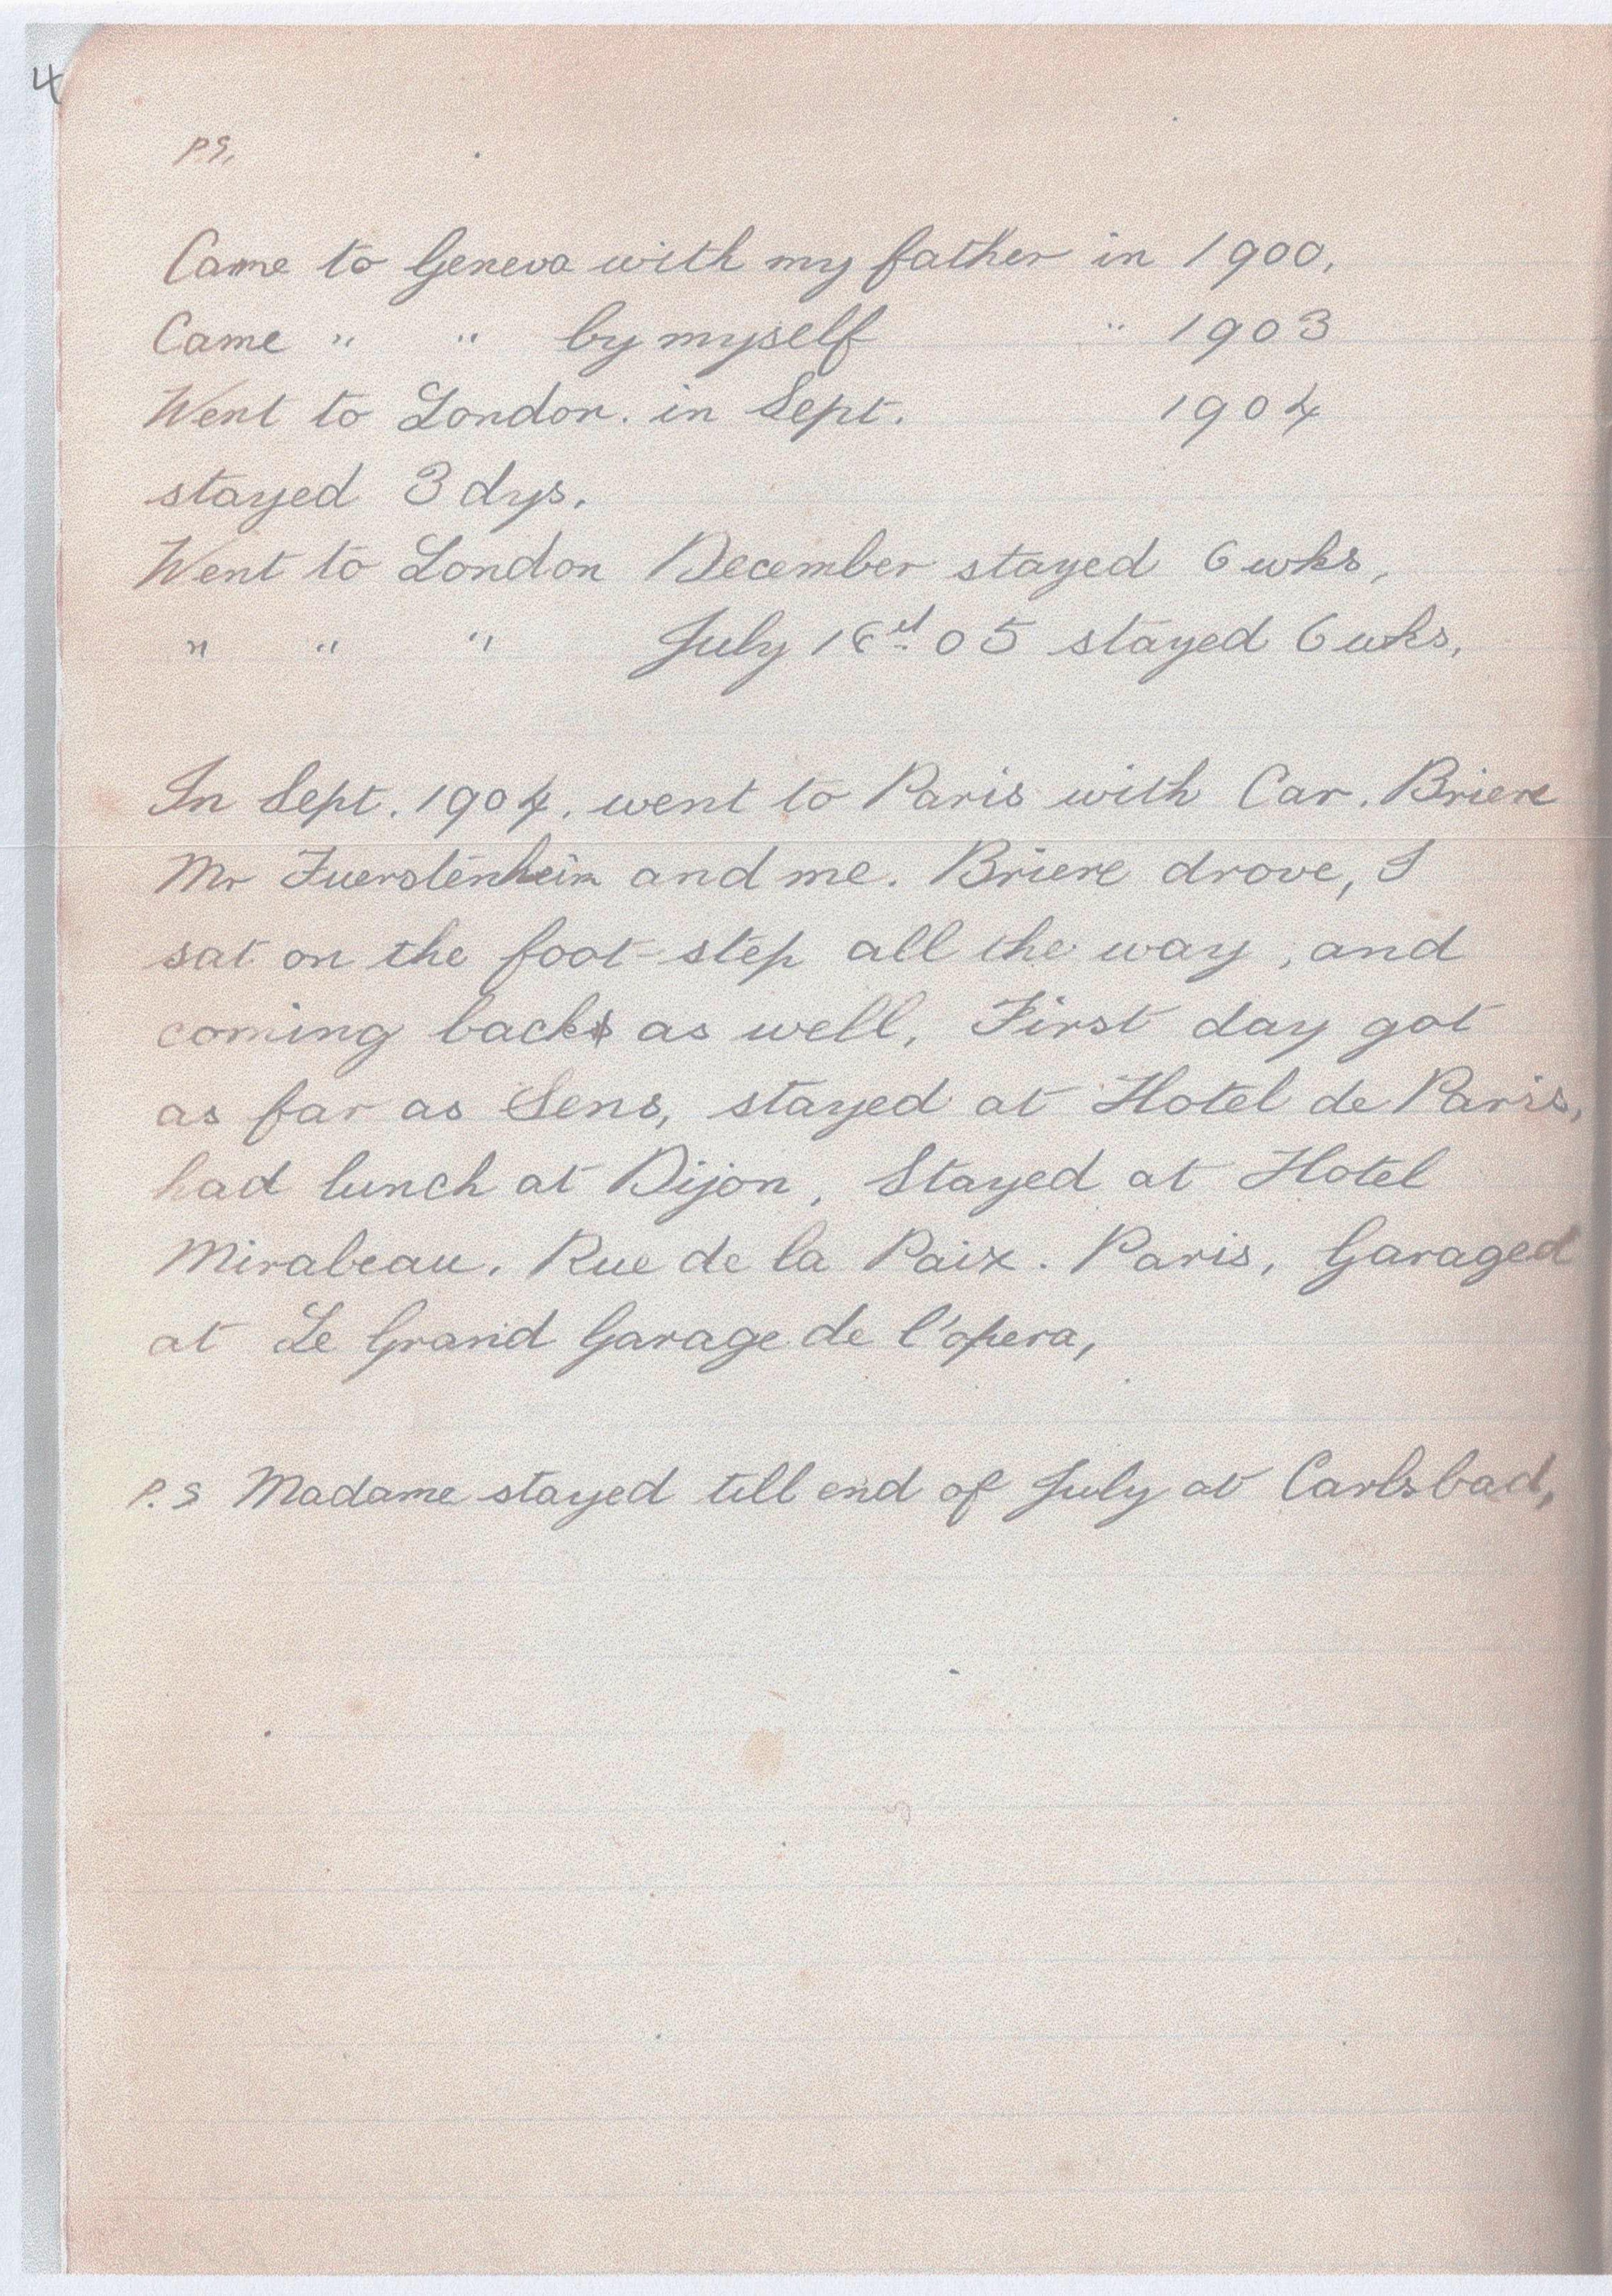 4
P.S.
Came to Geneva with my father in 1900.
Came " " by myself " 1903
Went to London. in Sept. 1904
stayed 3 dys.
Went to London December stayed 6 wks,
" " " July 05 stayed 6 wks,
In Sept. 1904. went to Paris with Car. Briere
Mr Fuerstenheim and me. Briere drove, I
sat on the foot-step all the way, and
coming back as well, First day got
as far as Sens, stayed at Hotel de Paris,
had lunch at Dijon, Stayed at Hotel
Mirabeau. Rue de la Paix. Paris, Garaged
at Le Grand Garage de l'opera,
P.S Madame stayed till end of July at Carlsbad,